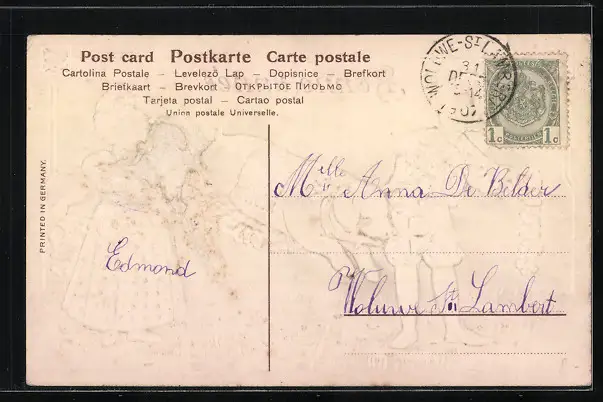 Post card Postkarte Carte postale
Cartolina Postale – Levelező Lap – Dopisnice – Brefkort
Briefkaart – Brevkort – ОТКРЫТОЕ ПИСЬМО
Tarjeta postal – Cartao postal
Union postale Universelle.
WOLUWE-ST LAMBERT
31
DEC
14
1907
1c 1c
PRINTED IN GERMANY.
Melle Anna De Belder
Edmond
Woluwe St Lambert